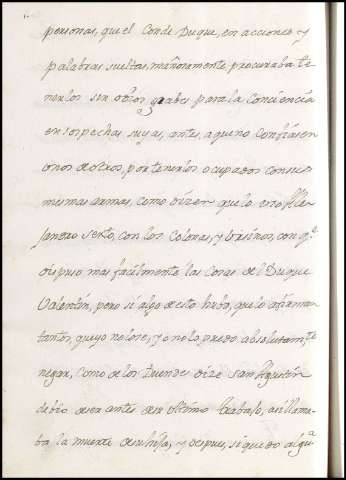 personas, que el Conde Duque, en acciones y
palabras sueltas, mañosamente procuraba te
nerlos sin otros grabes para la Conciencia
en sospechas suyas, antes, a que no confiasen
unos de otros, por tenerlos ocupados con sus
mesmas armas, como dizen que lo izo Ale
jandro sexto, con los Colonas, y Ursinos, con q.^e
dispuso mas facilmente las cosas del Duque
Valentin, pero si algo de esto hubo, que lo afirman
tantos, que yo no lo se, y no lo puedo absolutam.^te
negar, como de los Duendes dize san Agustin
debio de ser antes de su ultimo trabajo, asi llama
ba la muerte de su hija, y despues, si quedo algũ